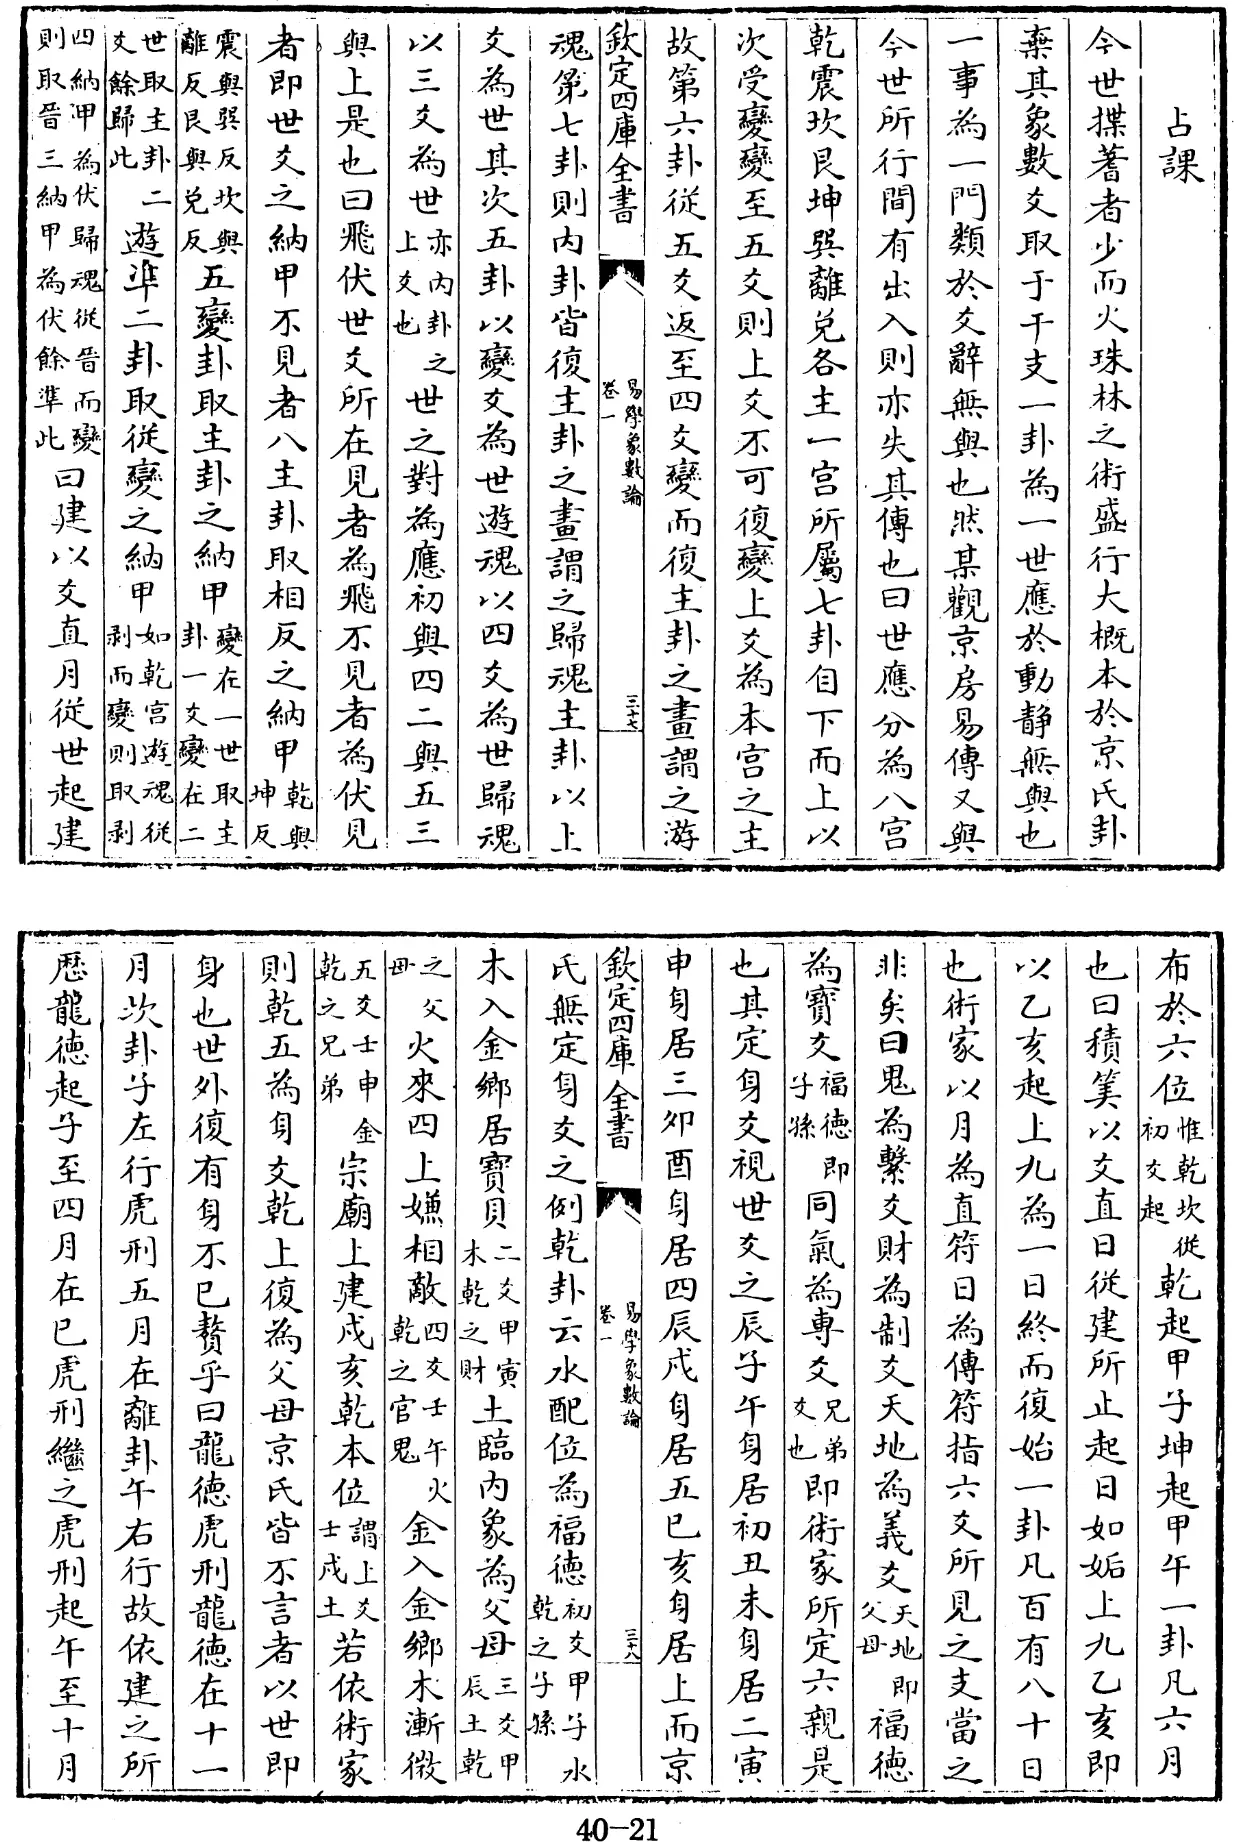 占課
今世揲蓍者少而火珠林之術盛行大概本於京氏卦
棄其象數爻取于干支一卦為一世應於動静無與也
一事為一門類於爻辭無與也然某觀京房易傳又與
今世所行間有出入則亦失其傳也曰世應分為八宫
乾震坎艮坤巽離兌各主一宫所屬七卦自下而上以
次受變變至五爻則上爻不可復變上爻為本宫之主
故第六卦從五爻返至四爻變而復主卦之畫謂之游
欽定四庫全書
易學象數論
卷一
三十七
魂第七卦則内卦皆復主卦之畫謂之歸魂主卦以上
爻為世其次五卦以變爻為世遊魂以四爻為世歸魂
以三爻為世亦内卦之上爻也世之對為應初與四二與五三
與上是也曰飛伏世爻所在見者為飛不見者為伏見
者即世爻之納甲不見者八主卦取相反之納甲乾與坤反
震與巽反坎與離反艮與兌反五變卦取主卦之納甲變在一世取主卦一爻變在二
世取主卦二爻餘歸此遊準二卦取從變之納甲如乾宫遊魂從剥而變則取剥
四納甲為伏歸魂從晋而變則取晋三納甲為伏餘準此曰建以爻直月從世起建
布於六位惟乾坎從初爻起乾起甲子坤起甲午一卦凡六月
也曰積筭以爻直日從建所止起日如姤上九乙亥即
以乙亥起上九為一日終而復始一卦凡百有八十日
也術家以月為直符日為傳符指六爻所見之支當之
非矣曰鬼為繫爻財為制爻天地為義爻天地即父母福德
為寶爻福德即子孫同氣為專爻兄弟爻也即術家所定六親是
也其定身爻視世爻之辰子午身居初丑未身居二寅
申身居三卯酉身居四辰戌身居五巳亥身居上而京
欽定四庫全書
易學象數論
卷一
三十八
氏無定身爻之例乾卦云水配位為福德初爻甲子水乾之子孫
木入金鄉居寶貝二爻甲寅木乾之財土臨内象為父母三爻甲辰土乾
之父母火來四上嫌相敵四爻壬午火乾之官鬼金入金鄉木漸微
五爻壬申金乾之兄弟宗廟上建戌亥乾本位謂上爻壬戌土若依術家
則乾五為身爻乾上復為父母京氏皆不言者以世即
身也世外復有身不已贅乎曰龍德虎刑龍德在十一
月坎卦子左行虎刑五月在離卦午右行故依建之所
歷龍德起子至四月在巳虎刑繼之虎刑起午至十月
40-21